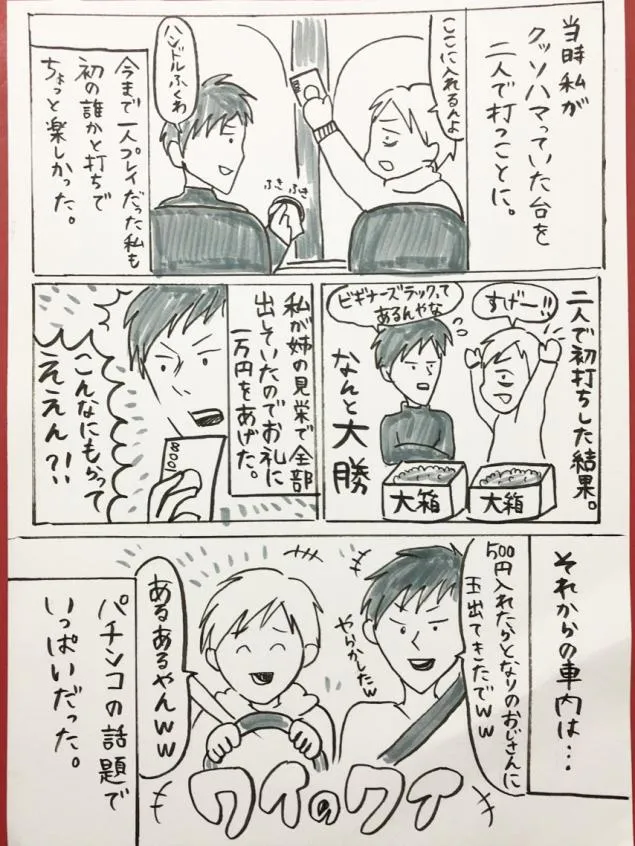 当時私が
クッソハマっていた台を
二人で打つことに。
ここに入れるんよ
ハンドルふくわ
ふきふき
今まで一人プレイだった私も
初の誰かと打ちで
ちょっと楽しかった。
二人で初打ちした結果。
すげー!!
ビギナーズラックって
あるんやな
なんと大勝
大箱
大箱
私が姉の見栄で全部
出していたのでお礼に
一万円をあげた。
こんなにもらって
ええん?!
それからの車内は…
500円入れたらとなりのおじさんに
玉出てきたでww
やらかしたw
あるあるやんww
ワイのワイ
パチンコの話題で
いっぱいだった。